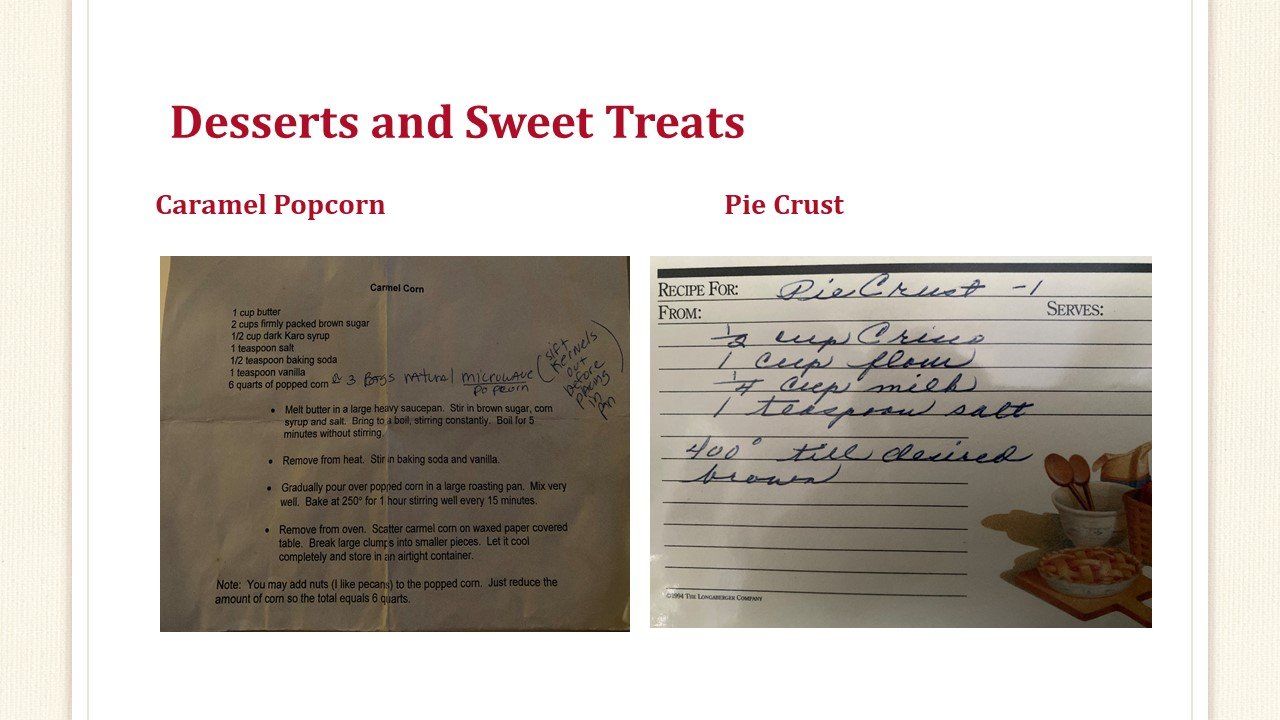 Desserts and Sweet Treats
Caramel Popcorn
Carmel Corn
1 cup butter
2 cups firmly packed brown sugar
1/2 cup dark Karo syrup
1 teaspoon salt
1/2 teaspoon baking soda
1 teaspoon vanilla
6 quarts of popped corn 3 Bags natural microwave
popcorn
(sift
kernels
out
before
placing
in
pan)
• Melt butter in a large heavy saucepan. Stir in brown sugar, corn
syrup and salt. Bring to a boil, stirring constantly. Boil for 5
minutes without stirring.
• Remove from heat. Stir in baking soda and vanilla.
• Gradually pour over popped corn in a large roasting pan. Mix very
well. Bake at 250° for 1 hour stirring well every 15 minutes.
• Remove from oven. Scatter carmel corn on waxed paper covered
table. Break large clumps into smaller pieces. Let it cool
completely and store in an airtight container.
Note: You may add nuts (I like pecans) to the popped corn. Just reduce the
amount of corn so the total equals 6 quarts.
Pie Crust
RECIPE FOR: Pie Crust -1
FROM: SERVES:
1/2 cup Crisco
1 cup flour
1/4 cup milk
1 teaspoon salt
400° till desired
brown
©1994 THE LONGABERGER COMPANY